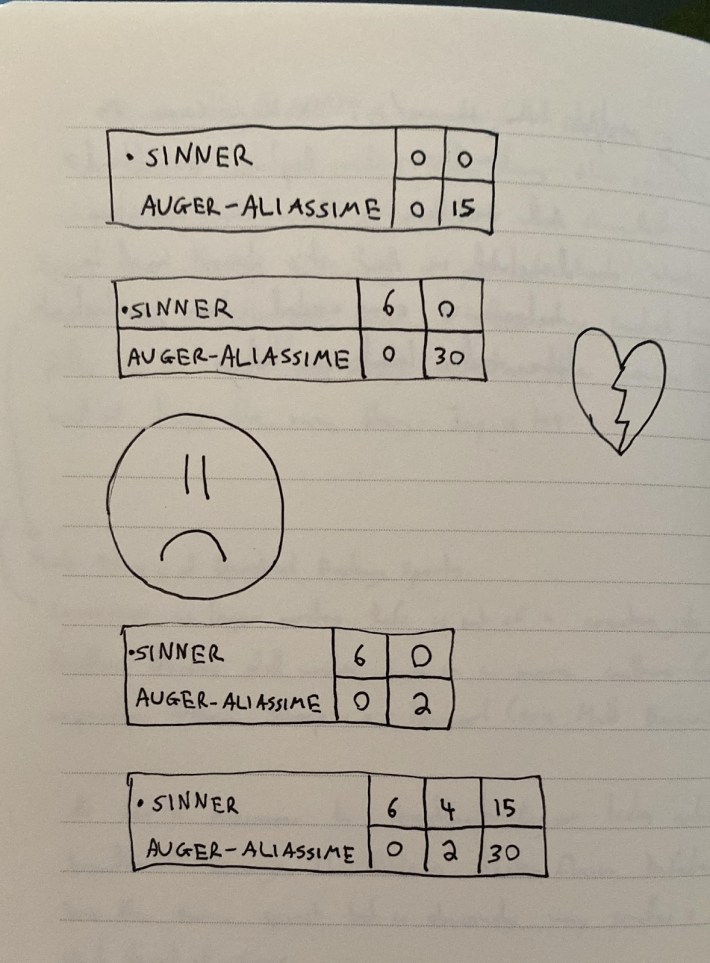 • SINNER 0 0
AUGER-ALIASSIME 0 15
•SINNER 6 0
AUGER-ALIASSIME 0 30
•SINNER 6 0
AUGER-ALIASSIME 0 2
• SINNER 6 4 15
AUGER-ALIASSIME 0 2 30